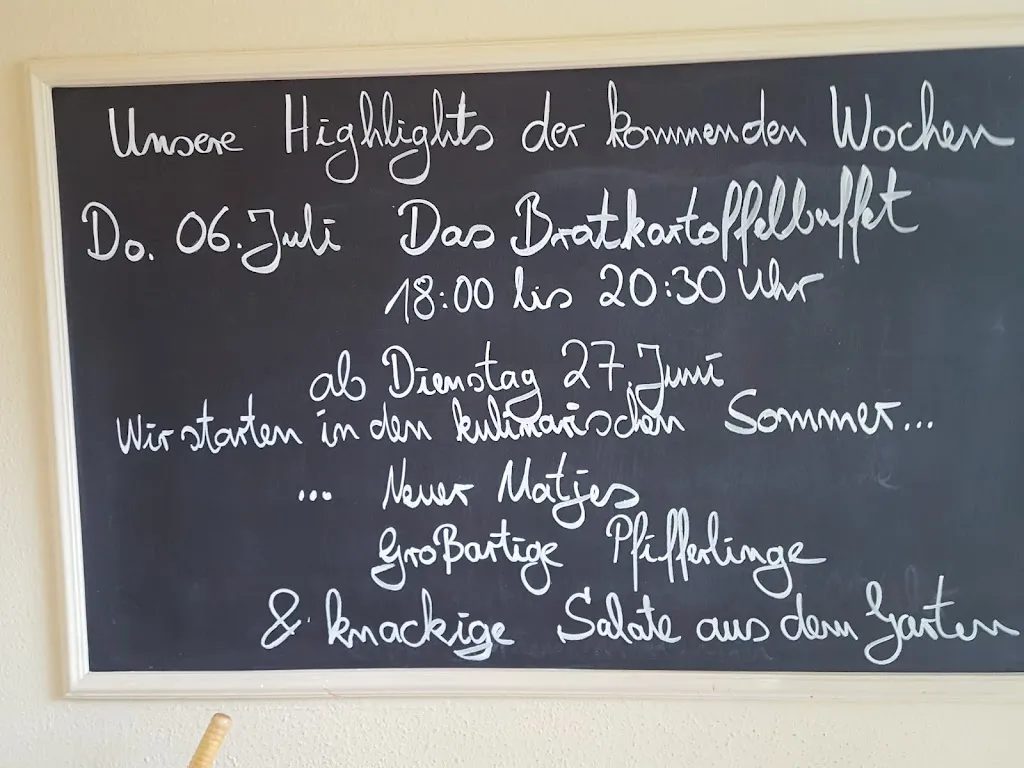 Unsere Highlights der kommenden Wochen
Do. 06. Juli Das Bratkartoffelbuffet
18:00 bis 20:30 Uhr
ab Dienstag 27. Juni
Wir starten in den kulinarischen Sommer...
... Neuer Matjes
Großartige Pfifferlinge
& knackige Salate aus dem Garten